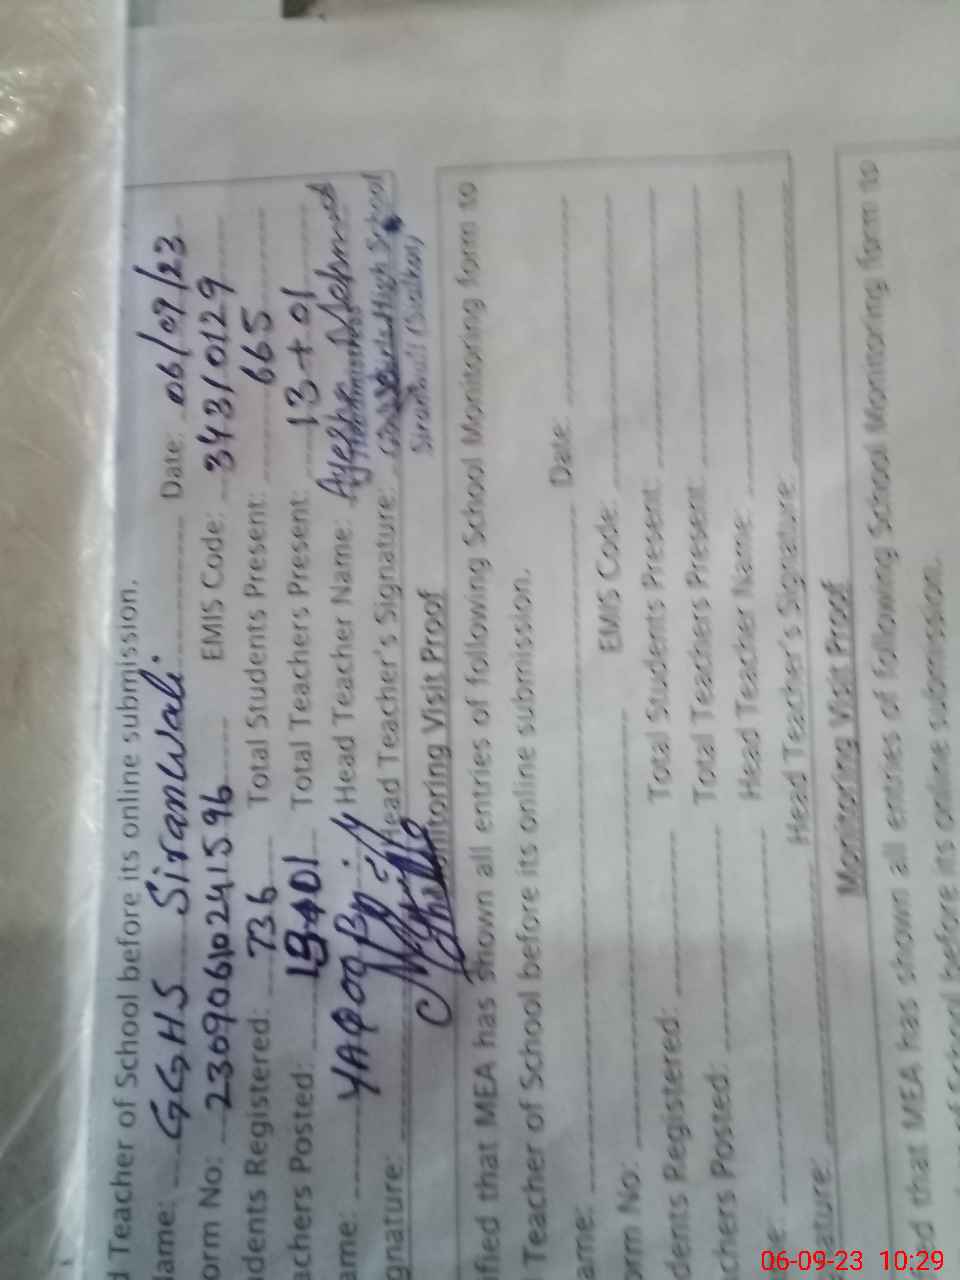 Teacher of School before its online submission.
ame: GGHS Siranwali. Date: 06/09/23
orm No: 23090610241596 EMIS Code: 34310129
dents Registered: 736 Total Students Present: 665
achers Posted: 01 Total Teachers Present: 13+01
ame: Head Teacher Name: Ayesha Mehmood
gnature: Head Teacher's Signature: Girls High School
Siranwali (Sialkot)
itoring Visit Proof
that MEA has shown all entries of following School Monitoring form to
Teacher of School before its online submission.
ame: Date:
orm No: EMIS Code:
dents Registered: Total Students Present:
chers Posted: Total Teachers Present:
e: Head Teacher Name:
ature: Head Teacher's Signature:
Monitoring Visit Proof
ed that MEA has shown all entries of following School Monitoring form to
of School before its online submission.
06-09-23 10:29